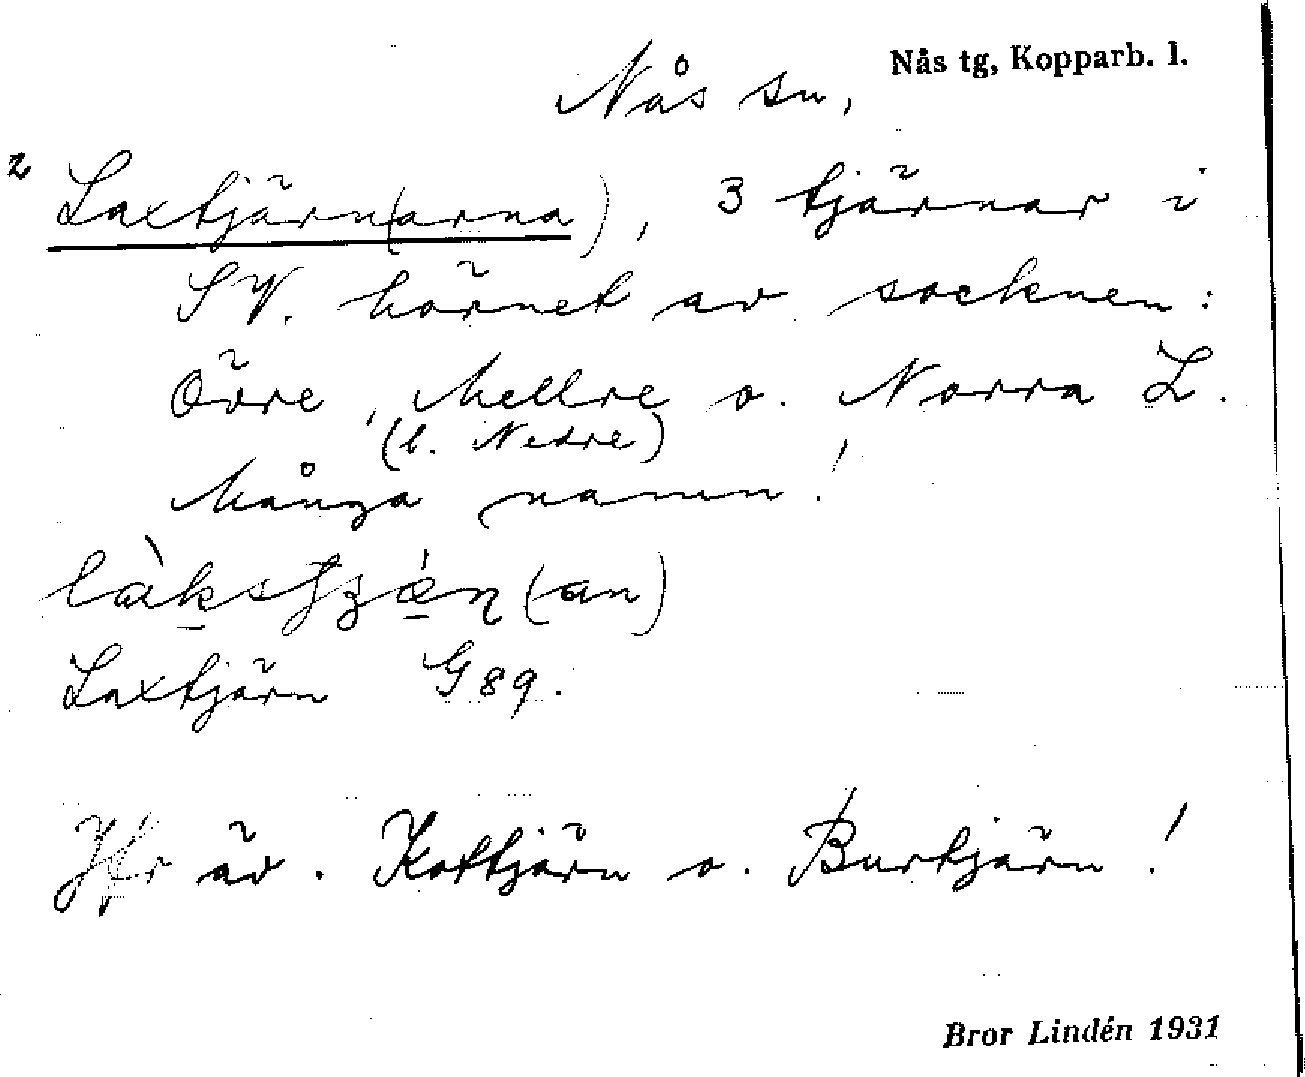 Nås tg, Kopparb. l.
Nås sn,
2 Laxtjärn(arna), 3 tjärnar i
SV. hörnet av socknen:
Övre, Mellre o. Norra L.
(l. Nedre)
Många namn!
Laxtjärn G89.
Jfr äv. Kottjärn o. Burtjärn!
Bror Lindén 1931